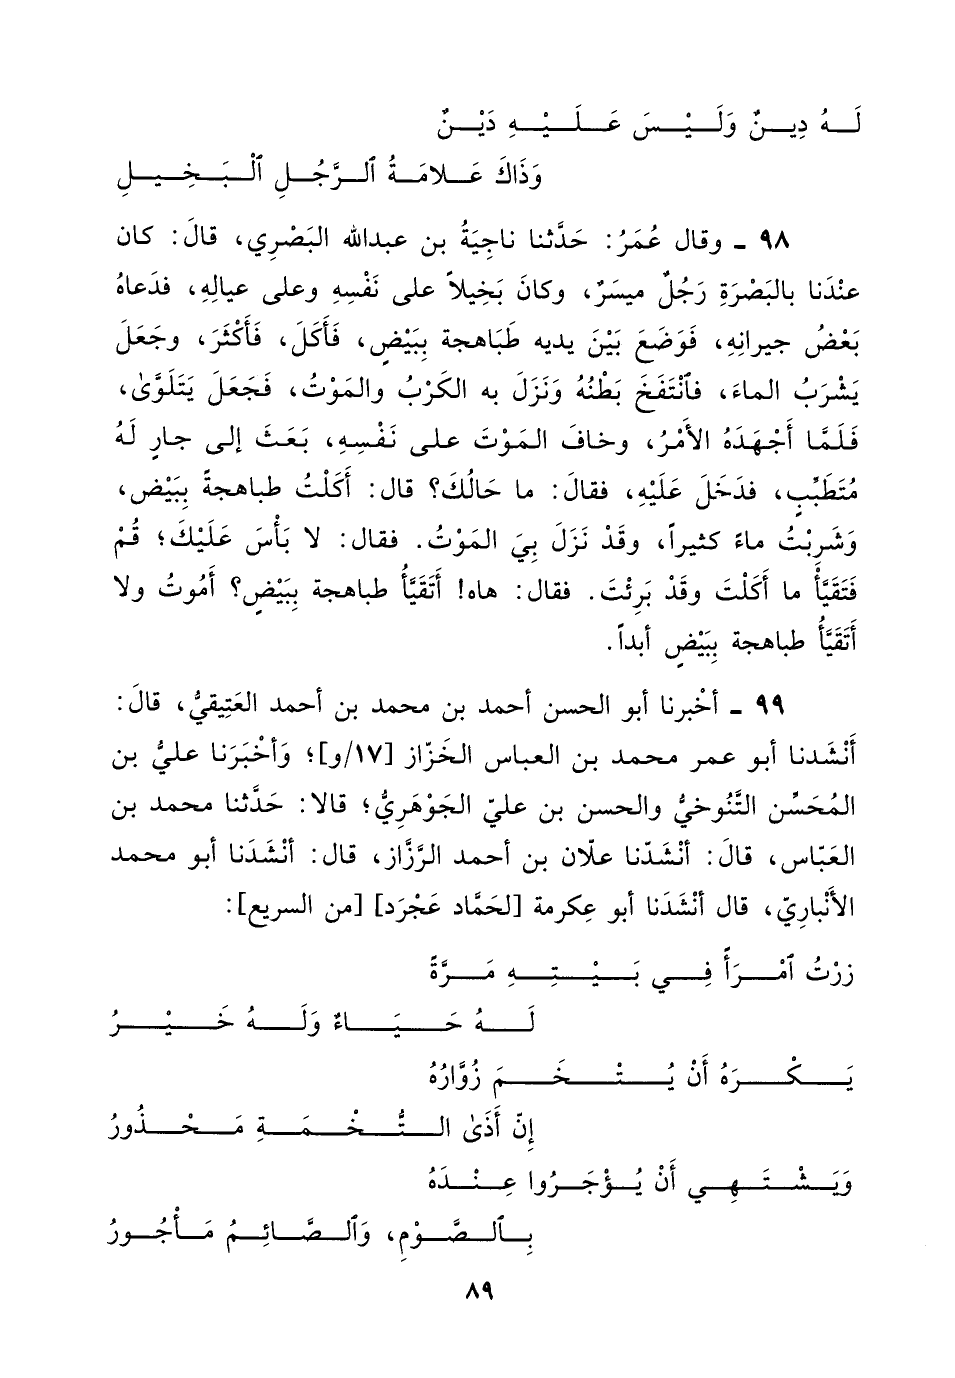 لَــهُ دِيــنٌ وَلَــيْــسَ عَــلَــيْــهِ دَيْــنٌ
وَذَاكَ عَــلامَــةُ ٱلــرَّجُــلِ ٱلْــبَــخِــيــلِ
٩٨ ـ وقال عُمَرُ: حَدَّثنا ناجِيَةُ بن عبدالله البَصْرِي، قالَ: كان
عنْدَنا بالبَصْرَةِ رَجُلٌ ميسَرٌ، وكانَ بَخِيلاً على نَفْسِهِ وعلى عيالِهِ، فدَعاهُ
بَعْضُ جيرانِهِ، فَوَضَعَ بَيْنَ يديه طَباهجة بِبَيْضٍ، فَأَكَلَ، فَأَكْثَرَ، وجَعَلَ
يَشْرَبُ الماءَ، فٱنْتَفَخَ بَطْنُهُ وَنَزَلَ به الكَرْبُ والمَوْتُ، فَجَعَلَ يَتَلَوَّىٰ،
فَلَمَّا أَجْهَدَهُ الأَمْرُ، وخافَ المَوْتَ على نَفْسِهِ، بَعَثَ إلى جارٍ لَهُ
مُتَطَبِّبٍ، فدَخَلَ عَلَيْهِ، فقالَ: ما حَالُكَ؟ قال: أَكَلْتُ طباهجةً بِبَيْضٍ،
وَشَرِبْتُ ماءً كثيراً، وقَدْ نَزَلَ بِيَ المَوْتُ. فقال: لا بَأْسَ عَلَيْكَ؛ قُمْ
فَتَقَيَّأْ ما أَكَلْتَ وقَدْ بَرِئْتَ. فقال: هاه! أَتَقَيَّأُ طباهجة بِبَيْضٍ؟ أَمُوتُ ولا
أَتَقَيَّأُ طباهجة بِبَيْضٍ أبداً.
٩٩ ـ أخْبرنا أبو الحسن أحمد بن محمد بن أحمد العَتِيقيُّ، قالَ:
أَنْشَدنا أبو عمر محمد بن العباس الخَزّاز [١٧/و]؛ وَأخْبَرَنا عليُّ بن
المُحَسِّن التَّنُوخيُّ والحسن بن عليّ الجَوْهَرِيُّ؛ قالا: حَدَّثنا محمد بن
العَبّاس، قالَ: أنْشَدّنا علّان بن أحمد الرَّزَّاز، قال: أنْشَدَنا أبو محمد
الأَنْبارِيّ، قال أنْشَدَنا أبو عِكرمة [لحَمَّاد عَجْرَد] [من السريع]:
زرْتُ ٱمْــرَأً فِــي بَــيْــتِــهِ مَــرَّةً
لَــهُ حَــيَــاءٌ وَلَــهُ خَــيْــرُ
يَــكْــرَهُ أَنْ يُــتْــخَــمَ زُوَّارُهُ
إِنّ أَذَىٰ الــتُّــخْــمَــةِ مَــحْــذُورُ
وَيَــشْــتَــهِــي أَنْ يُــؤْجَــرُوا عِــنْــدَهُ
بِــٱلــصَّــوْمِ، وَٱلــصَّــائِــمُ مَــأْجُــورُ
٨٩